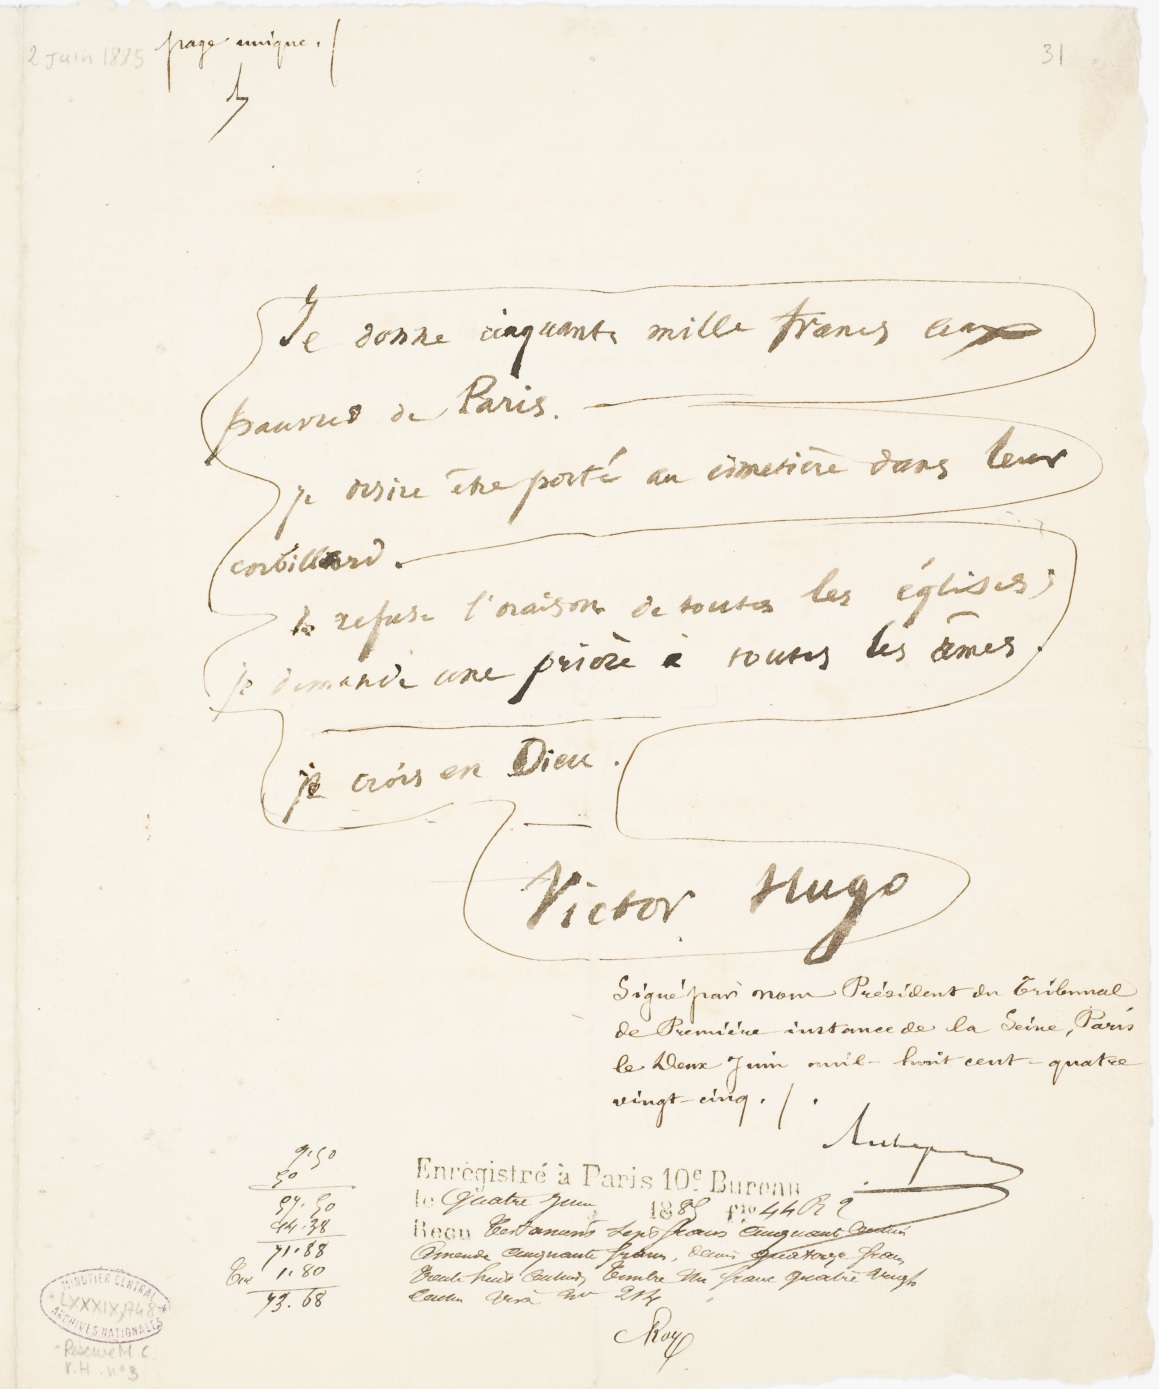 2 Juin 1885 page unique. /
31
Je donne cinquante mille francs aux
pauvres de Paris.
je désire être porté au cimetière dans leur
corbillard.
Je refuse l'oraison de toutes les églises ;
je demande une prière à toutes les âmes.
je crois en Dieu.
Victor Hugo
Signé par nous Président du Tribunal
de Première instance de la Seine, Paris
le Deux Juin mil- huit cent- quatre
vingt-cinq. / .
50
71.88
1.80
73.68
Enregistré à Paris 10e Bureau
le quatre Juin 1885 fo 44 R
Reçu Testament sept francs cinquante centimes
Amende cinquante francs, quatorze francs
trente huit centimes, timbre un franc quatre vingt
cent visé No 214
Roy
MINUTIER CENTRAL
LXXXIX, 1748
ARCHIVES NATIONALES
Réserve M.C.
V.H. n°3